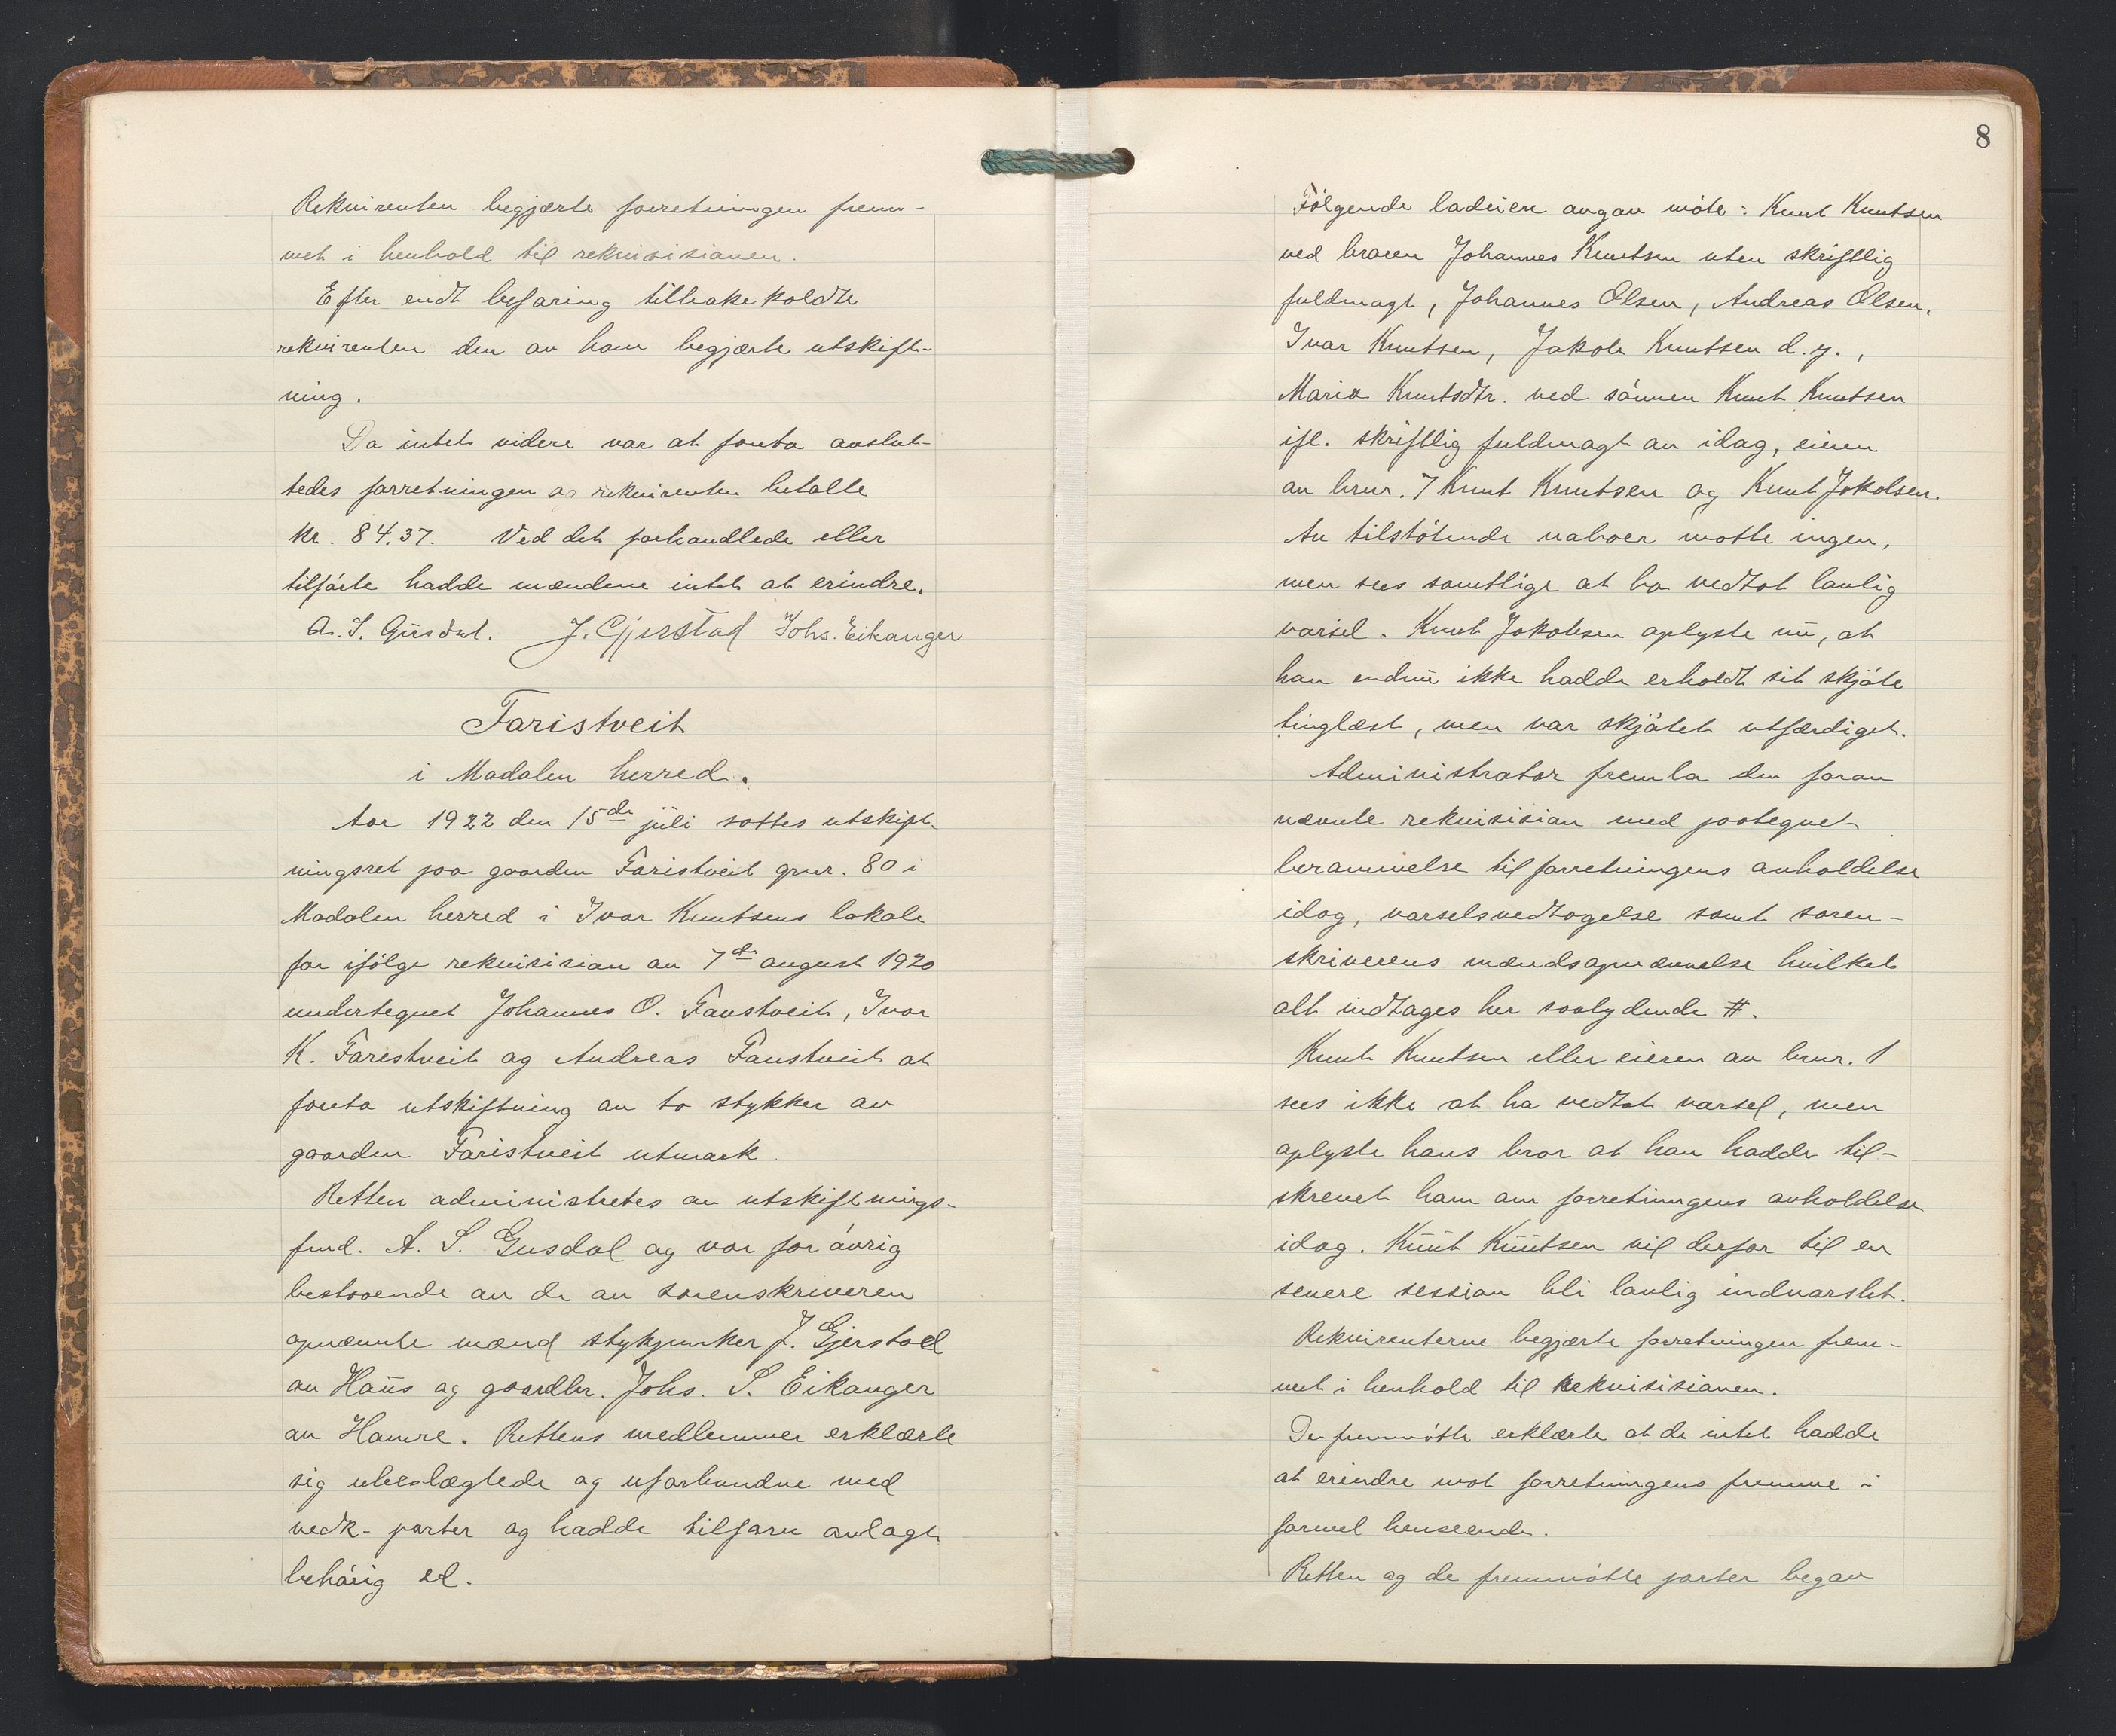 Rekvirenten begjærte forretningen frem-
met i henhold til rekvisisionen.
Efter endt befaring tilbakekaldte
rekvirenten den av ham begjærte utskift-
ning.
Da intet videre var at foreta avslut-
tedes forretningen og rekvirenten betalte
kr. 84.37. Ved det forhandlede eller
tilførte hadde mændene intet at erindre.
A. S. Gusdal. J. Gjerstad Johs. Eikanger
Faristveit
i Modalen herred.
Aar 1922 den 15de juli sattes utskift-
ningsret paa gaarden Faristveit gnr. 80 i
Modalen herred i Ivar Knutsens lokale
for ifølge rekvisision av 7de august 1920
undertegnet Johannes O. Farestveit, Ivar
K. Farestveit og Andreas Farestveit at
foreta utskiftning av to stykker av
gaarden Faristveit utmark.
Retten administretes av utskiftnings-
fmd. A. S. Gusdal og var for øvrig
bestaaende av de av sorenskriveren
opnævnte mænd stykjunker J. Gjerstad
av Haus og gaardbr. Johs. S. Eikanger
av Hamre. Rettens medlemmer erklærte
sig ubeslægtede og uforbundne med
vedk. parter og hadde tilforn avlagt
behørig ed.
8
Følgende lodeiere avgav møte: Knut Knutsen
ved broren Johannes Knutsen uten skriftlig
fuldmagt, Johannes Olsen, Andreas Olsen,
Ivar Knutsen, Jakob Knutsen d.y.,
Maria Knutsdtr. ved sønnen Knut Knutsen
ifl. skriftlig fuldmagt av idag, eieren
av brnr. 7 Knut Knutsen og Knut Jakobsen.
Av tilstøtende naboer møtte ingen,
men sees samtlige at ha vedtat lovlig
varsel. Knut Jakobsen oplyste nu, at
han endnu ikke hadde erholdt sit skjøte
tinglæst, men var skjøtet utfærdiget.
Administrator fremla den foran
nævnte rekvisision med paategnet
berammelse til forretningens avholdelse
idag, varselsvedtagelse samt soren-
skriverens mændsopnævnelse hvilket
alt indtages her saalydende #.
Knut Knutsen eller eieren av brnr. 1
sees ikke at ha vedtat varsel, men
oplyste hans bror at han hadde til-
skrevet ham om forretningens avholdelse
idag. Knut Knutsen vil derfor til en
senere session bli lovlig indvarslet.
Rekvirenterne begjærte forretningen frem-
met i henhold til rekvisisionen.
De fremmøtte erklærte at de intet hadde
at erindre mot forretningens fremme i
formel henseende.
Retten og de fremmøtte parter begav